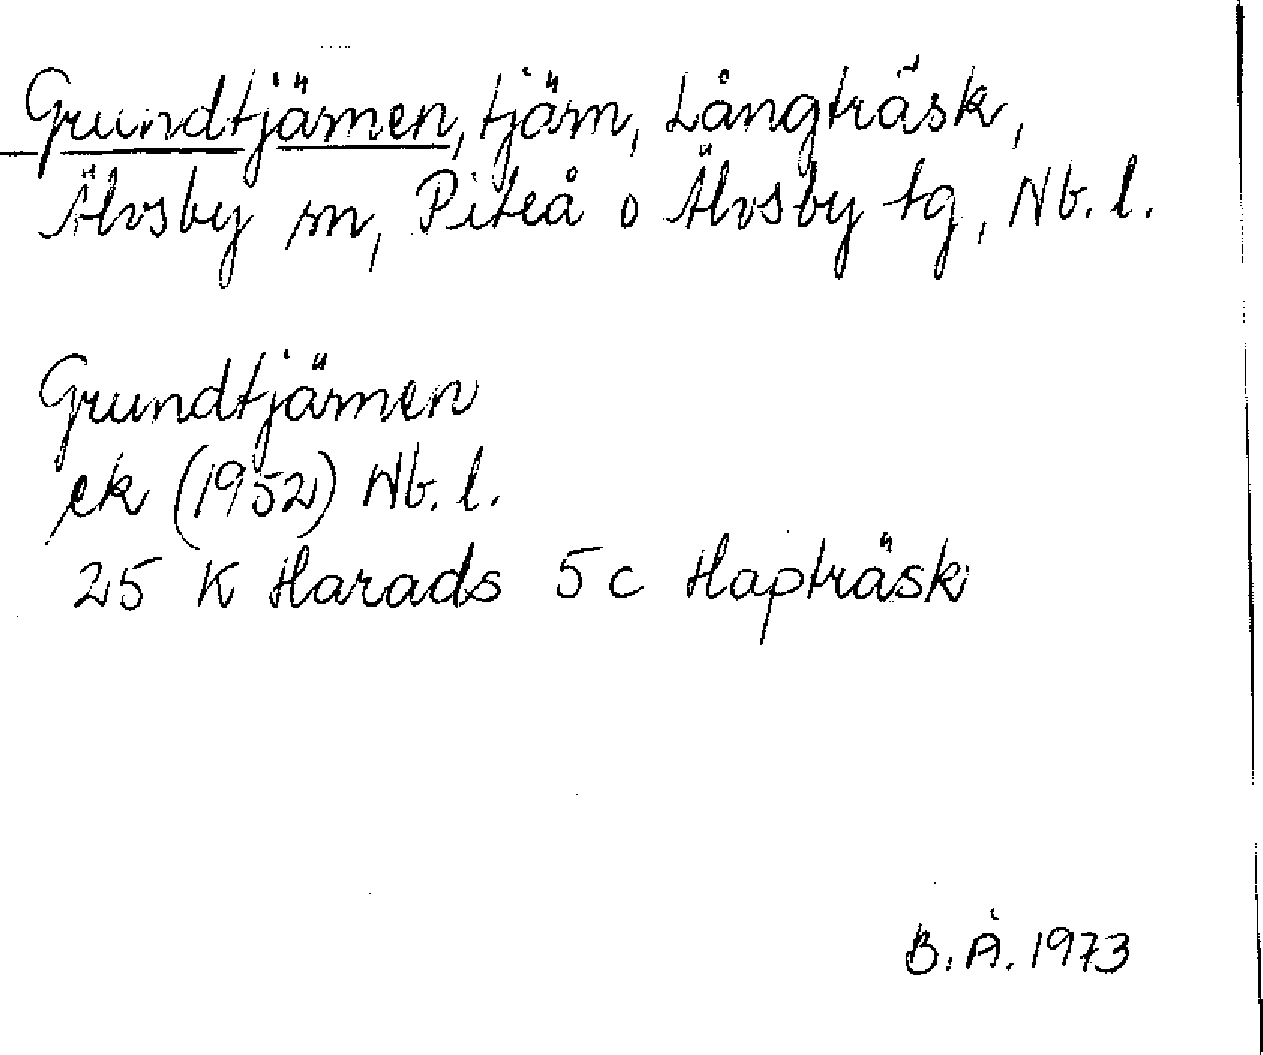 Grundtjärnen, tjärn, Långträsk,
Älvsby sn, Piteå o Älvsby tg, Nb. l.
Grundtjärnen
ek (1952) Nb. l.
25 K Harads 5 c Hapträsk
B. Å. 1973